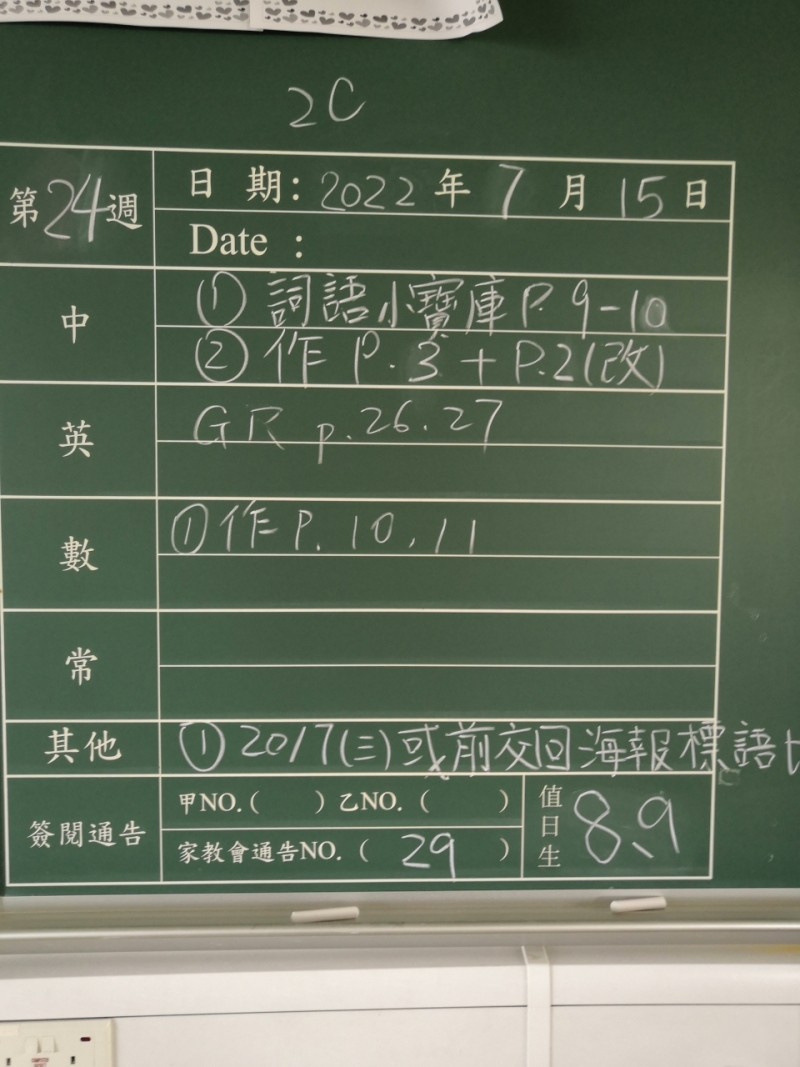 2C
第24週
日 期: 2022 年 7 月 15 日
Date :
中
① 詞語小寶庫 P. 9-10
② 作 P. 3 + P.2(改)
英
GR p.26.27
數
①作 P. 10, 11
常
其他
① 20/7(三)或前交回海報標語
簽閱通告
甲NO.( ) 乙NO.( )
家教會通告NO.( 29 )
值日生
8、9